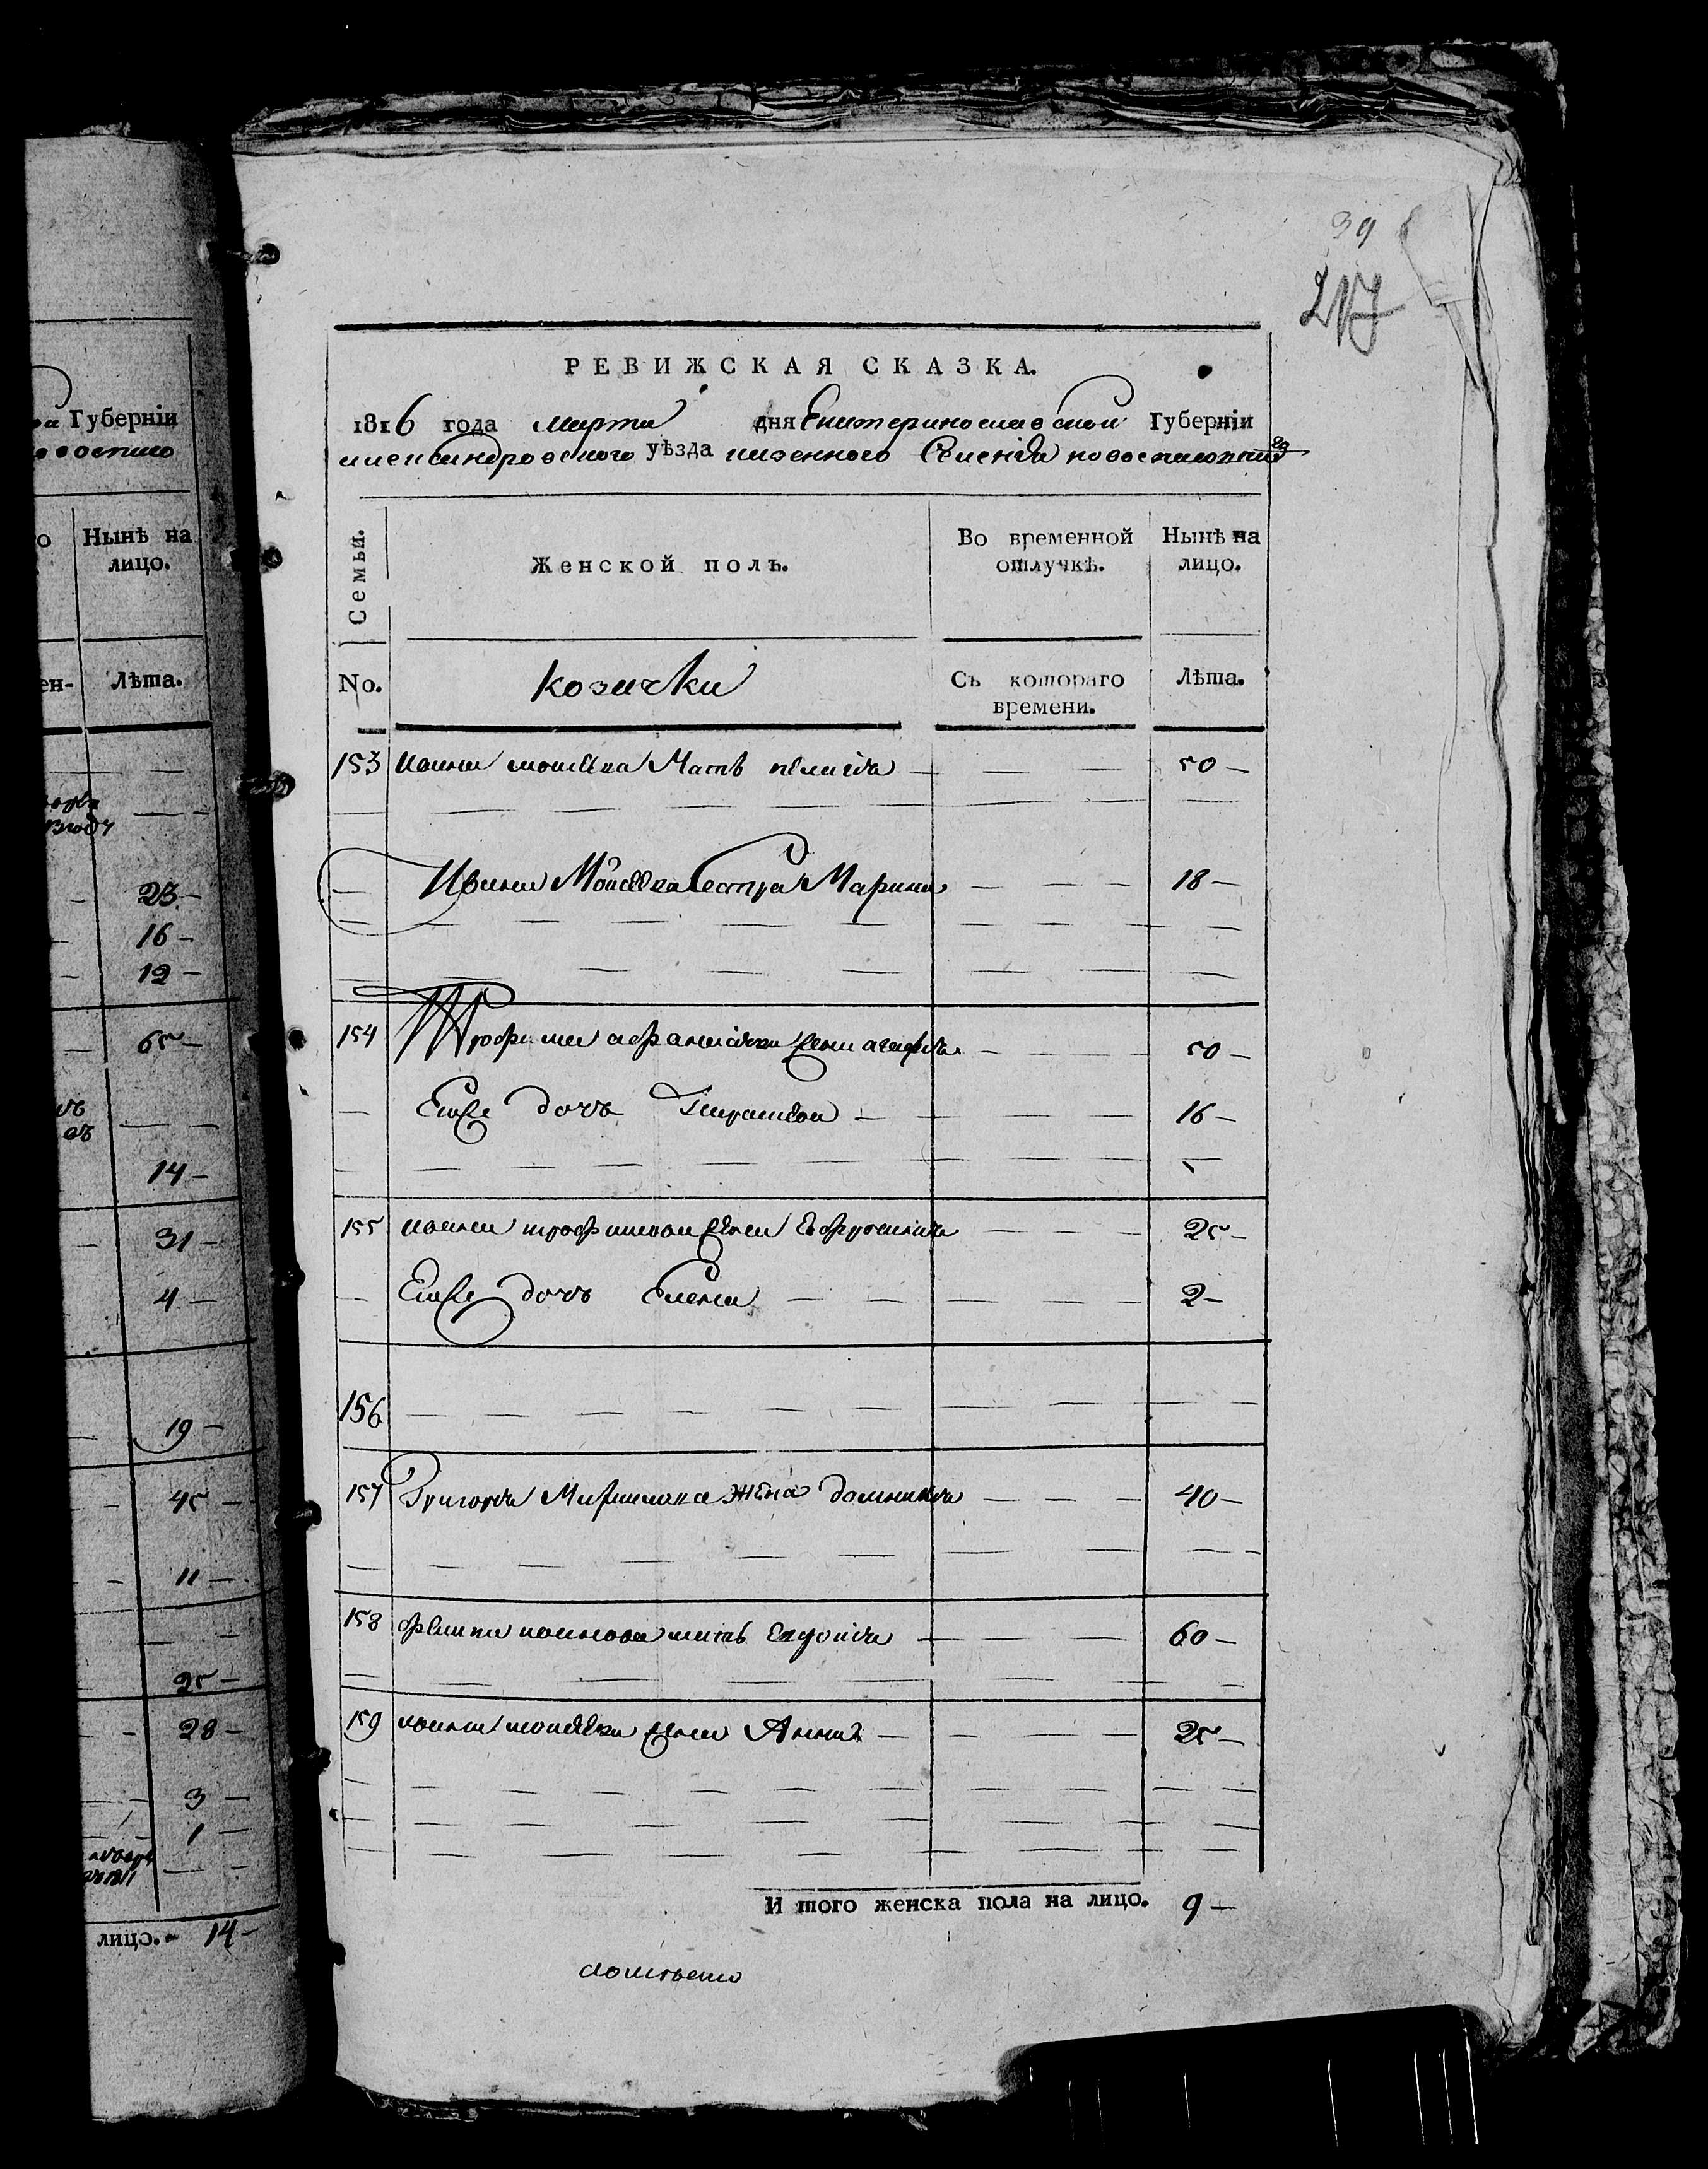 39
217
РЕВИЖСКАЯ СКАЗКА.
1816 года марта дня Екатеринославской Губернїи
александровского уѣзда казенного Селенїя новоспасовки
Семьи.
Женской полъ.
Во временной отлучкѣ.
Нынѣ на лицо.
No.
козачки
Съ котораго времени.
Лѣта.
153 ивана моисеева Мать пелагія — — — 50 —
— Ивана Моисеева Сестра Марина — — — 18 —
154 Трофима афанасіева жена агафія — — — 50 —
— Емуже дочь — — — 16 —
155 ивана трофимова жена Ефросинія — — — 25 —
— Егоже дочь Елена — — — 2 —
156 — — — — — — — — —
157 Григорія жена домникія — — — 40 —
158 иванова мать Евдокія — — — 60 —
159 ивана моисеева жена Анна — — — 25 —
И того женска пола на лицо. 9 —
Губернїи
Нынѣ на
лицо.
Лѣта.
23 —
16 —
12 —
65 —
14 —
31 —
4 —
19 —
45 —
11 —
25 —
28 —
3 —
1 —
лицо. 14 —